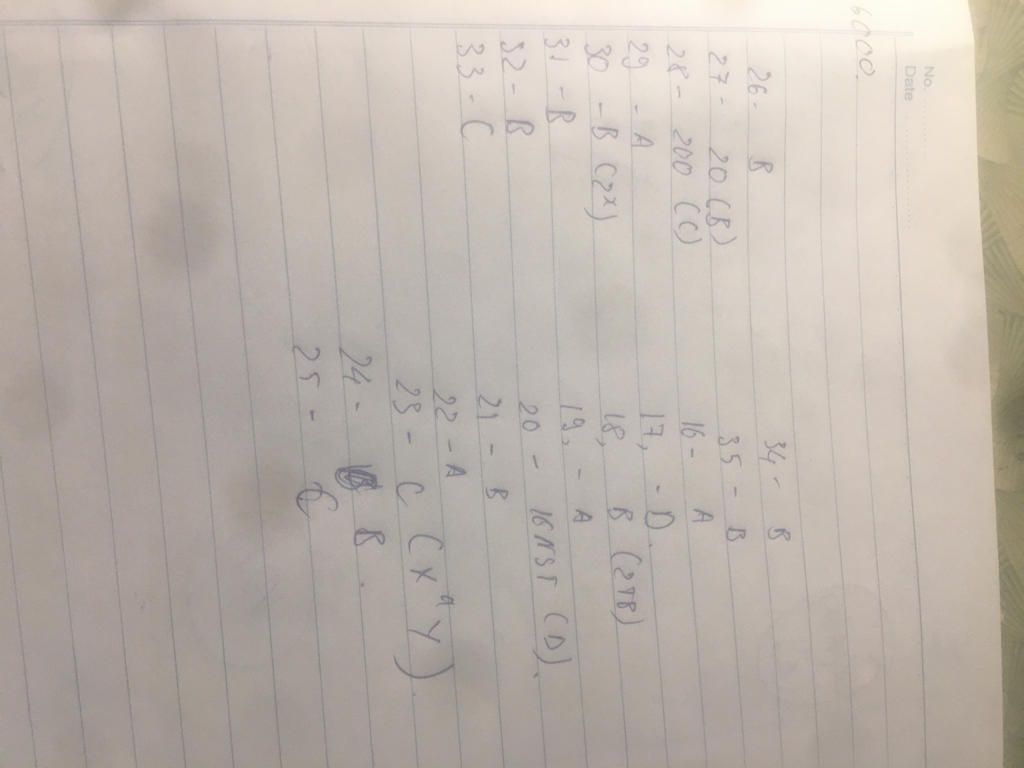 No.
Date
6000.
26- B
27- 20 (B)
28- 200 (C)
29 - A
30 - B (2x)
31 - B
32 - B
33 - C
34- B
35 - B
16- A
17, - D.
18, B (2TB)
19, - A
20 - (D).
21 - B
22 - A
23 - C (X Y)
24- B.
25 - C